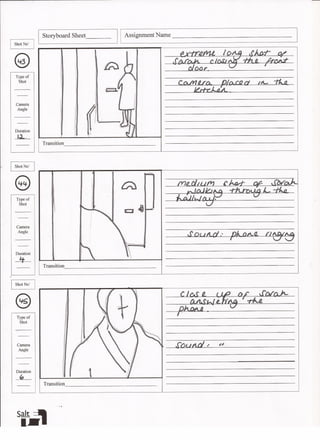 Storyboard Sheet
Assignment Name
Shot No'
43
Type of
Shot
Camera
Angle
Duration
12
Transition
extreme long shot of
Sarah closing the front
door.
Camera placed in the
kitchen.
Shot No'
44
Type of
Shot
Camera
Angle
Duration
4
Transition
medium shot of Sarah
walking through the
hallway
Sound: phone ringing
Shot No'
45
Type of
Shot
Camera
Angle
Duration
6
Transition
close up of Sarah
answering the
phone.
Sound: "
Salt